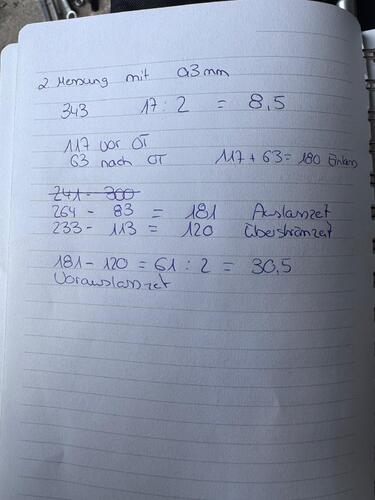 2 Messung mit 0,3mm
343 17 : 2 = 8,5
117 vor OT
63 nach OT 117 + 63 = 180 Einlass
241 - 300
264 - 83 = 181 Auslasszeit
233 - 113 = 120 Überströmzeit
181 - 120 = 61 : 2 = 30,5
Vorauslasszeit